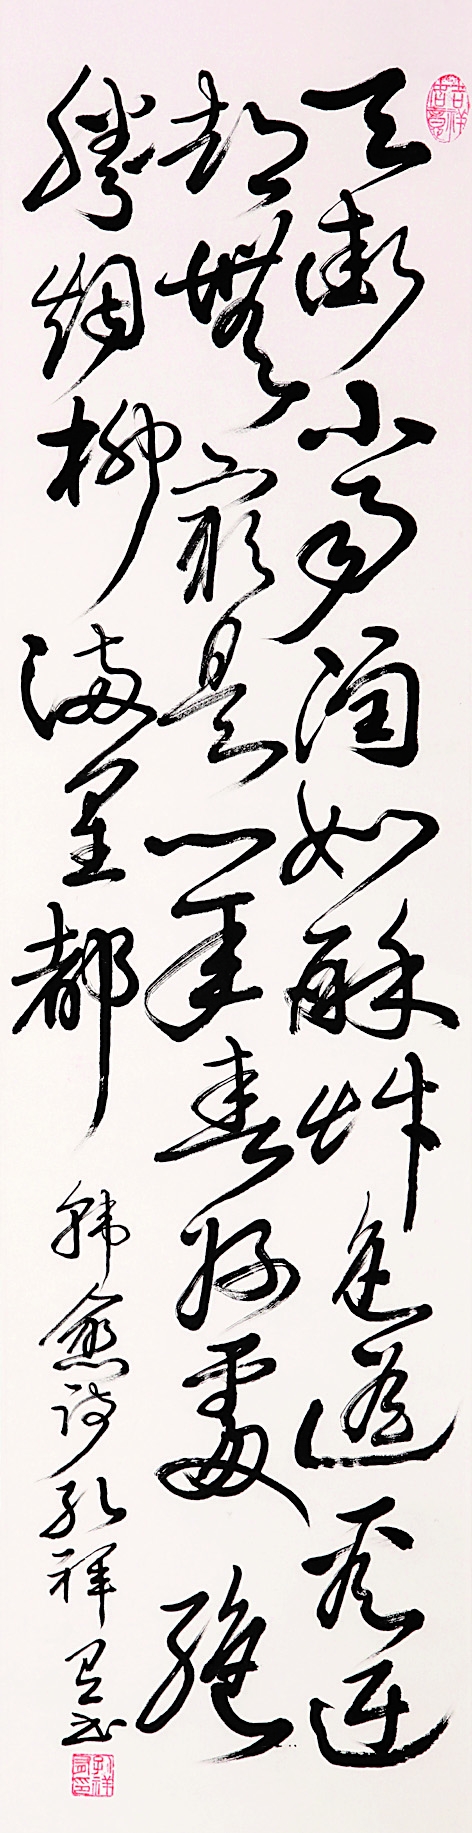 天街小雨润如酥草色遥看近
却無最是一年春好處絕
勝烟柳满皇都
韩愈诗孔祥书